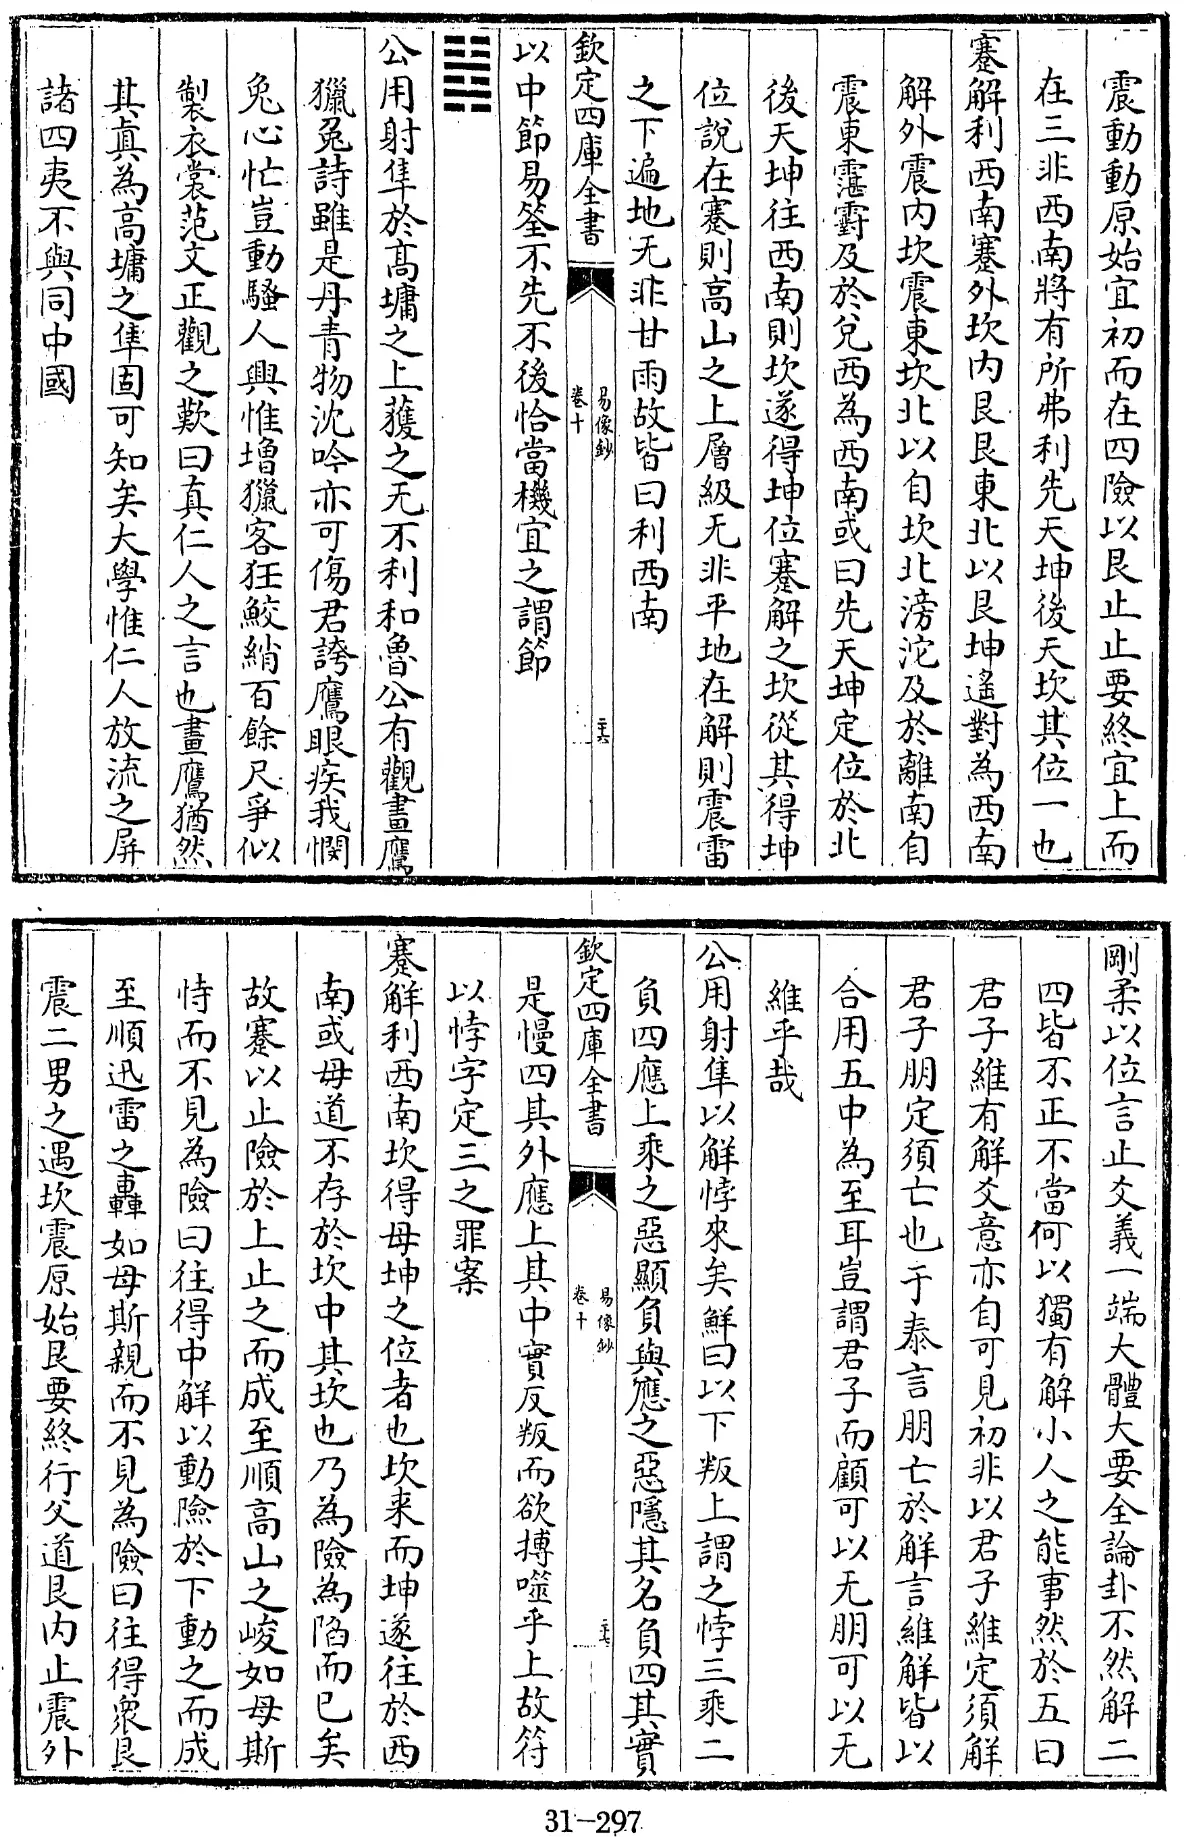 震動動原始宜初而在四險以艮止止要終宜上而
在三非西南將有所弗利先天坤後天坎其位一也
蹇解利西南蹇外坎内艮艮東北以艮坤遙對為西南
解外震内坎震東坎北以自坎北滂沱及於離南自
震東霮䨴及於兌西為西南或曰先天坤定位於北
後天坤往西南則坎遂得坤位蹇解之坎從其得坤
位說在蹇則高山之上層級无非平地在解則震雷
之下遍地无非甘雨故皆曰利西南
欽定四庫全書
易像鈔
卷十
二十六
以中節易筌不先不後恰當機宜之謂節
䷧
公用射隼於高墉之上獲之无不利和魯公有觀畫鷹
獵兔詩雖是丹青物沈吟亦可傷君誇鷹眼疾我憫
兔心忙豈動騷人興惟增獵客狂鮫綃百餘尺爭似
製衣裳范文正觀之歎曰真仁人之言也畫鷹猶然
其真為高墉之隼固可知矣大學惟仁人放流之屏
諸四夷不與同中國
剛柔以位言止爻義一端大體大要全論卦不然解二
四皆不正不當何以獨有解小人之能事然於五曰
君子維有解爻意亦自可見初非以君子維定須解
君子朋定須亡也于泰言朋亡於解言維解皆以
合用五中為至耳豈謂君子而顧可以无朋可以无
維乎哉
公用射隼以解悖來矣鮮曰以下叛上謂之悖三乘二
負四應上乘之惡顯負與應之惡隱其名負四其實
欽定四庫全書
易像鈔
卷十
二十七
是慢四其外應上其中實反叛而欲搏噬乎上故符
以悖字定三之罪案
蹇解利西南坎得母坤之位者也坎来而坤遂往於西
南或母道不存於坎中其坎也乃為險為陷而已矣
故蹇以止險於上止之而成至順高山之峻如母斯
恃而不見為險曰往得中解以動險於下動之而成
至順迅雷之轟如母斯親而不見為險曰往得衆艮
震二男之遇坎震原始艮要終行父道艮内止震外
31-297